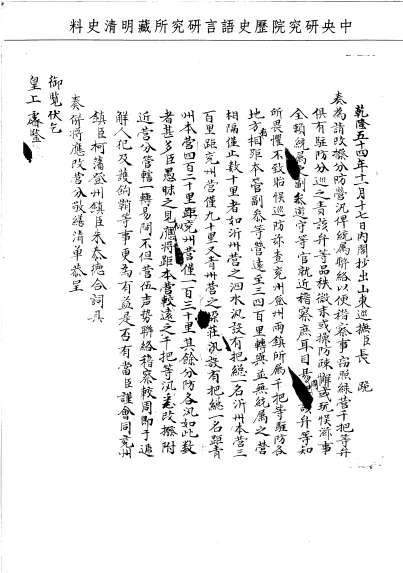 中央研究院歷史語言研究所藏明清史料
乾隆五十四年十一月十七日內閣抄出山東巡撫臣長 跪
奏為請改撥分防營汛俾統屬聯絡以便稽察事竊照綠營千把等弁
俱有駐防分巡之責該弁等品秩微末或操防疎懈或玩候滋事
全賴統屬之副參遊守等官就近稽察庶耳目易周該弁等知
所畏懼不致貽候巡防茲查兗州登州兩鎮所屬千把等駐防各
地方有相距本官副參等營遠至三四百里轉與並無統屬之營
相隔僅止數十里者如沂州營之泗水汛設有把總一名距沂州本營三
百里距兗州營僅九十里又青州營之 莊汛設有把總一名距青
州本營四百二十里距兗州營僅一百三十里其餘分防各汛如此數
者甚多臣愚昧之見應將距本營較遠之千把等汛悉改撥附
近營分管轄一轉易間不但營伍聲勢聯絡稽察較周即于遞
解人犯及護餉鞘等事更為有益是否有當臣謹會同兗州
鎮臣柯藩登州鎮臣朱泰德合詞具
奏併將應改營分敬繕清單恭呈
御覽伏乞
皇上睿鑒